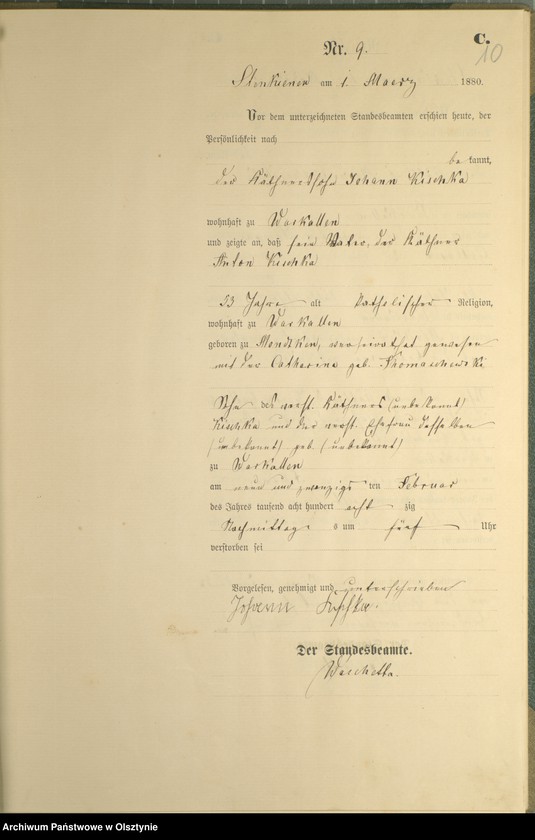 C.
10
Nr. 9.
Stenkienen am 1. Maerz 1880.
Vor dem unterzeichneten Standesbeamten erschien heute, der
Persönlichkeit nach
be kannt,
der Käthnersohn Johann Kischka
wohnhaft zu Warkallen
und zeigte an, daß sein Vater, der Käthner
Anton Kischka
53 Jahre alt katholischer Religion,
wohnhaft zu Warkallen
geboren zu Mondtken, verheirathet gewesen
mit der Catharina geb. Thomaschewski
Sohn des verst. Käthners (unbekannt)
Kischka und der verst. Ehefrau desselben
(unbekannt) geb. (unbekannt)
zu Warkallen
am neun und zwanzigs ten Februar
des Jahres tausend acht hundert acht zig
Nachmittag s um fünf Uhr
verstorben sei
Vorgelesen, genehmigt und unterschrieben
Johann Kischka.
Der Standesbeamte.
Archiwum Państwowe w Olsztynie